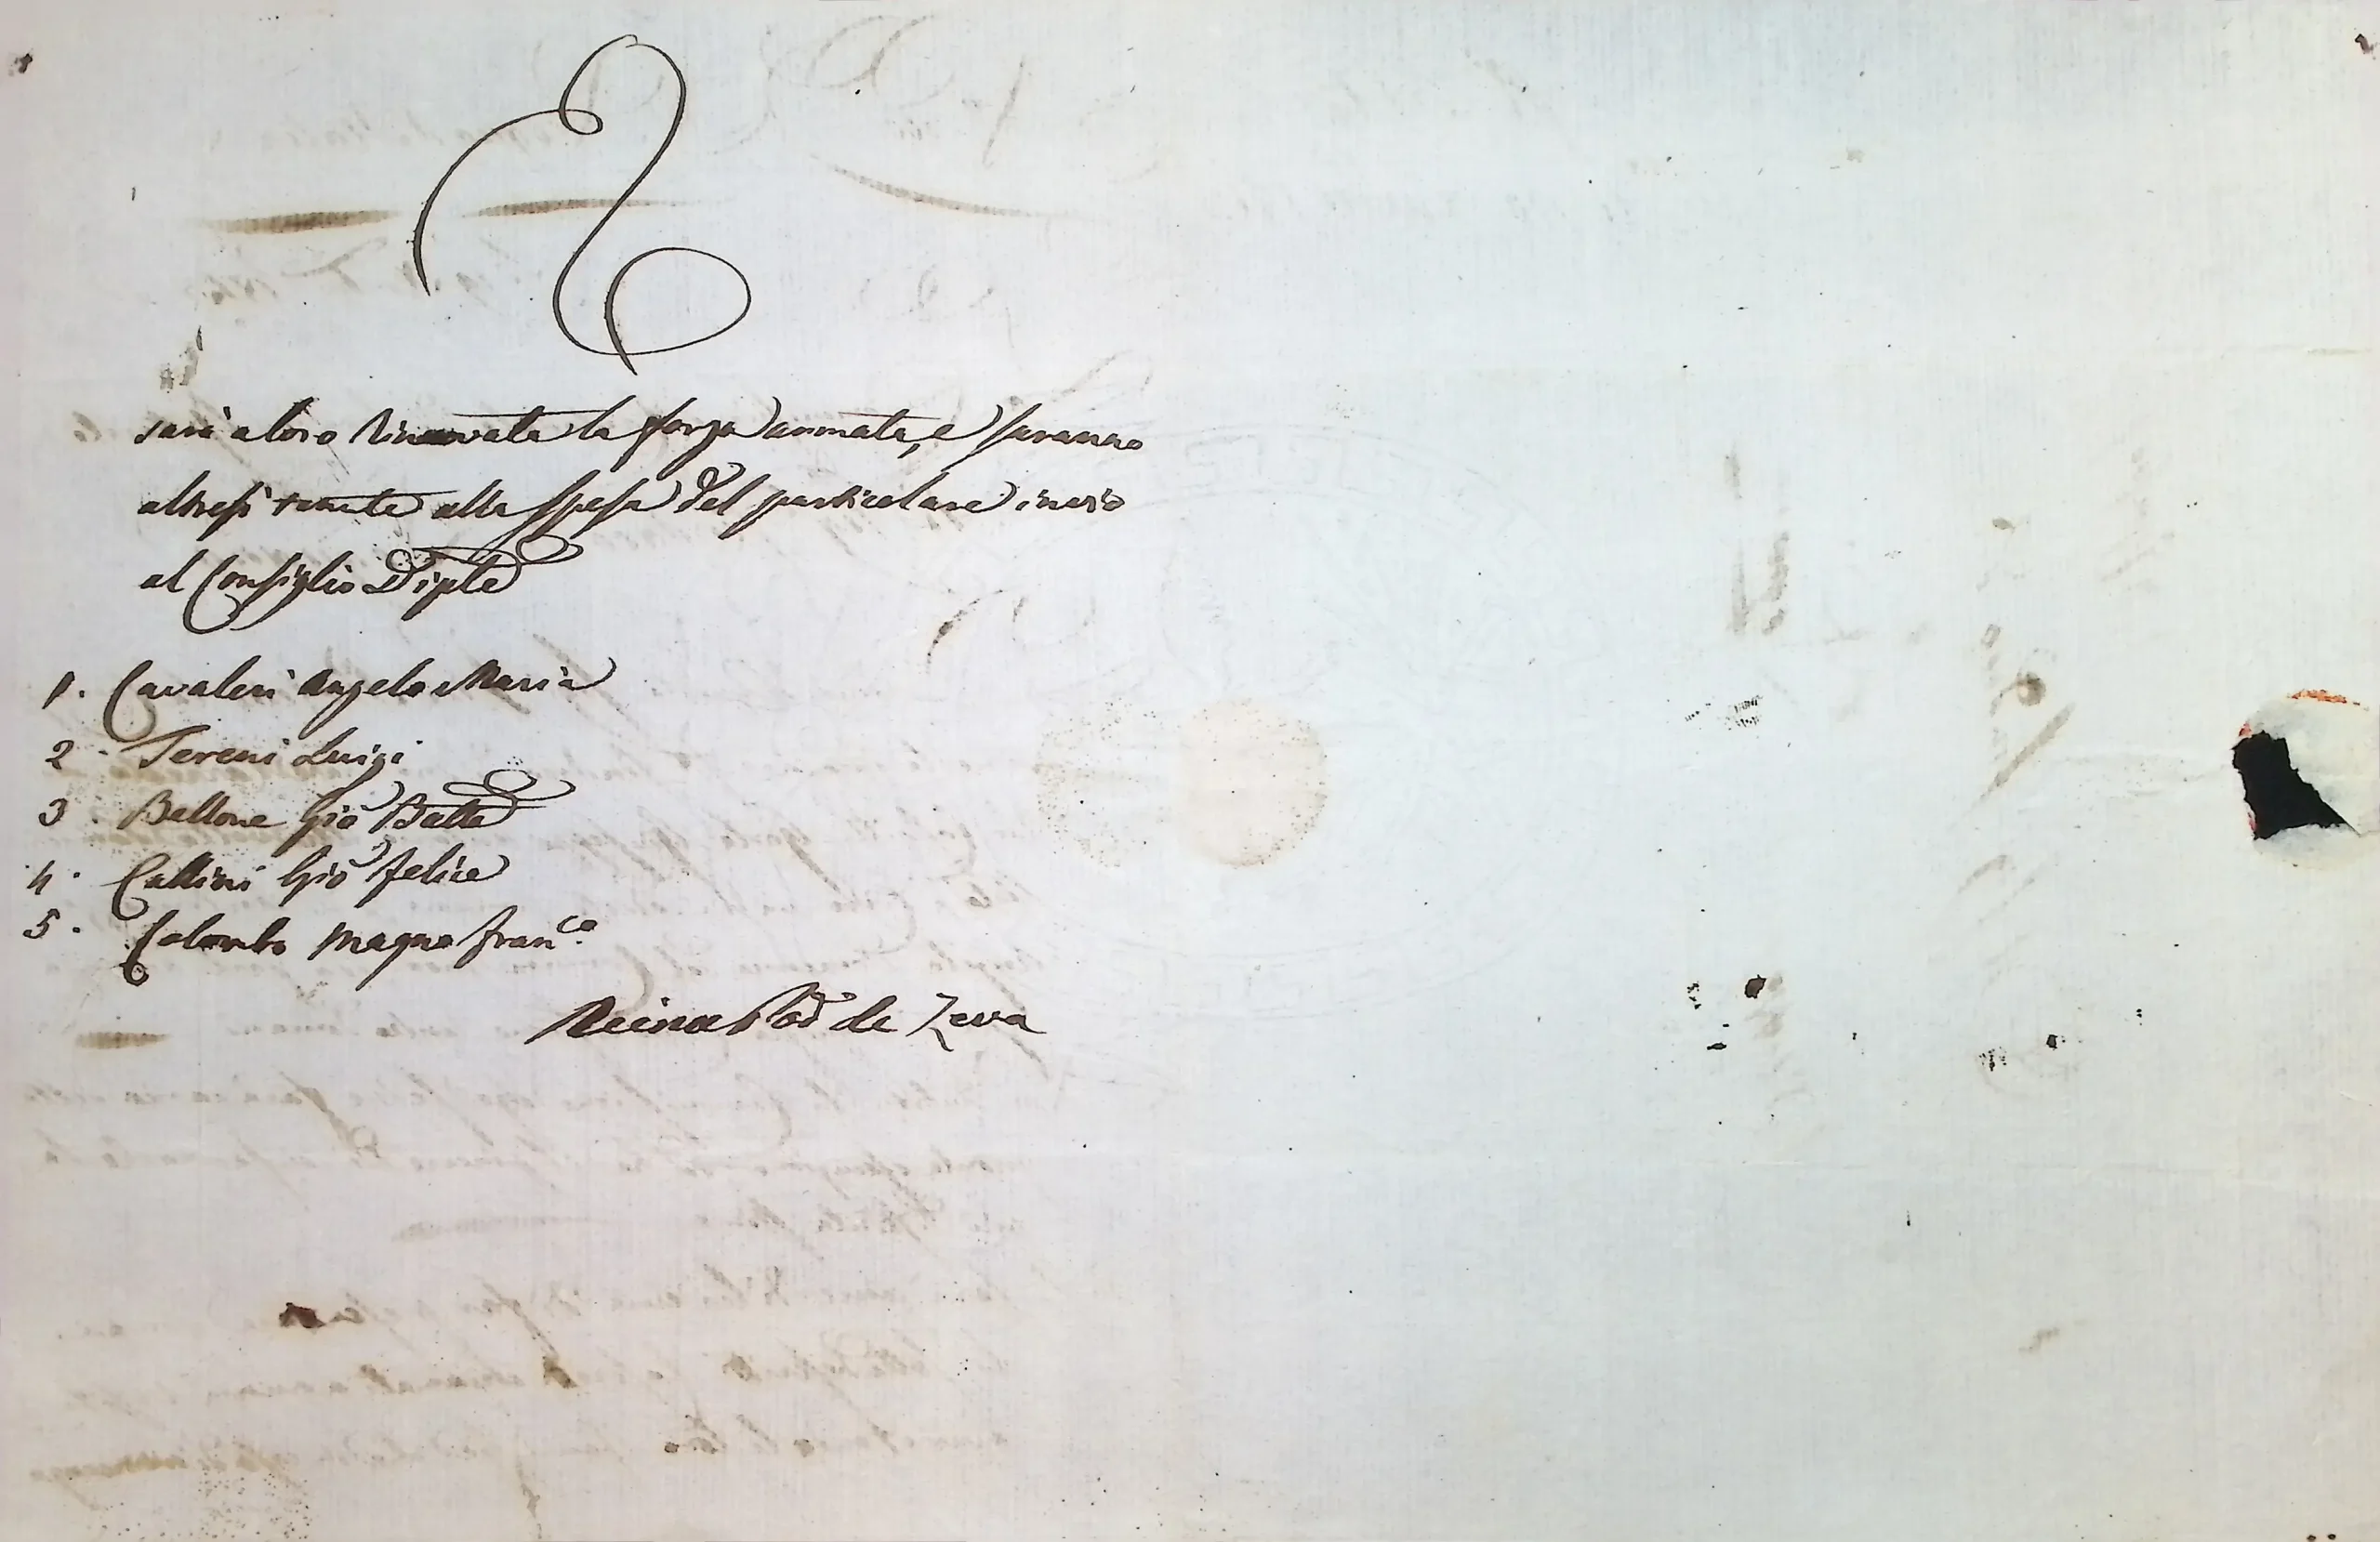 sarà a loro rinnovata la forza armata, e saranno
altresì tenute alla spesa del particolare invio
al Consiglio Diple
1. Cavaleri Angelo Maria
2 - Tereni Luigi
3. Bellone Gio Batta
4. Cattini Gio Felice
5. Colombo Magno Franco
Reina Pod de Zeva